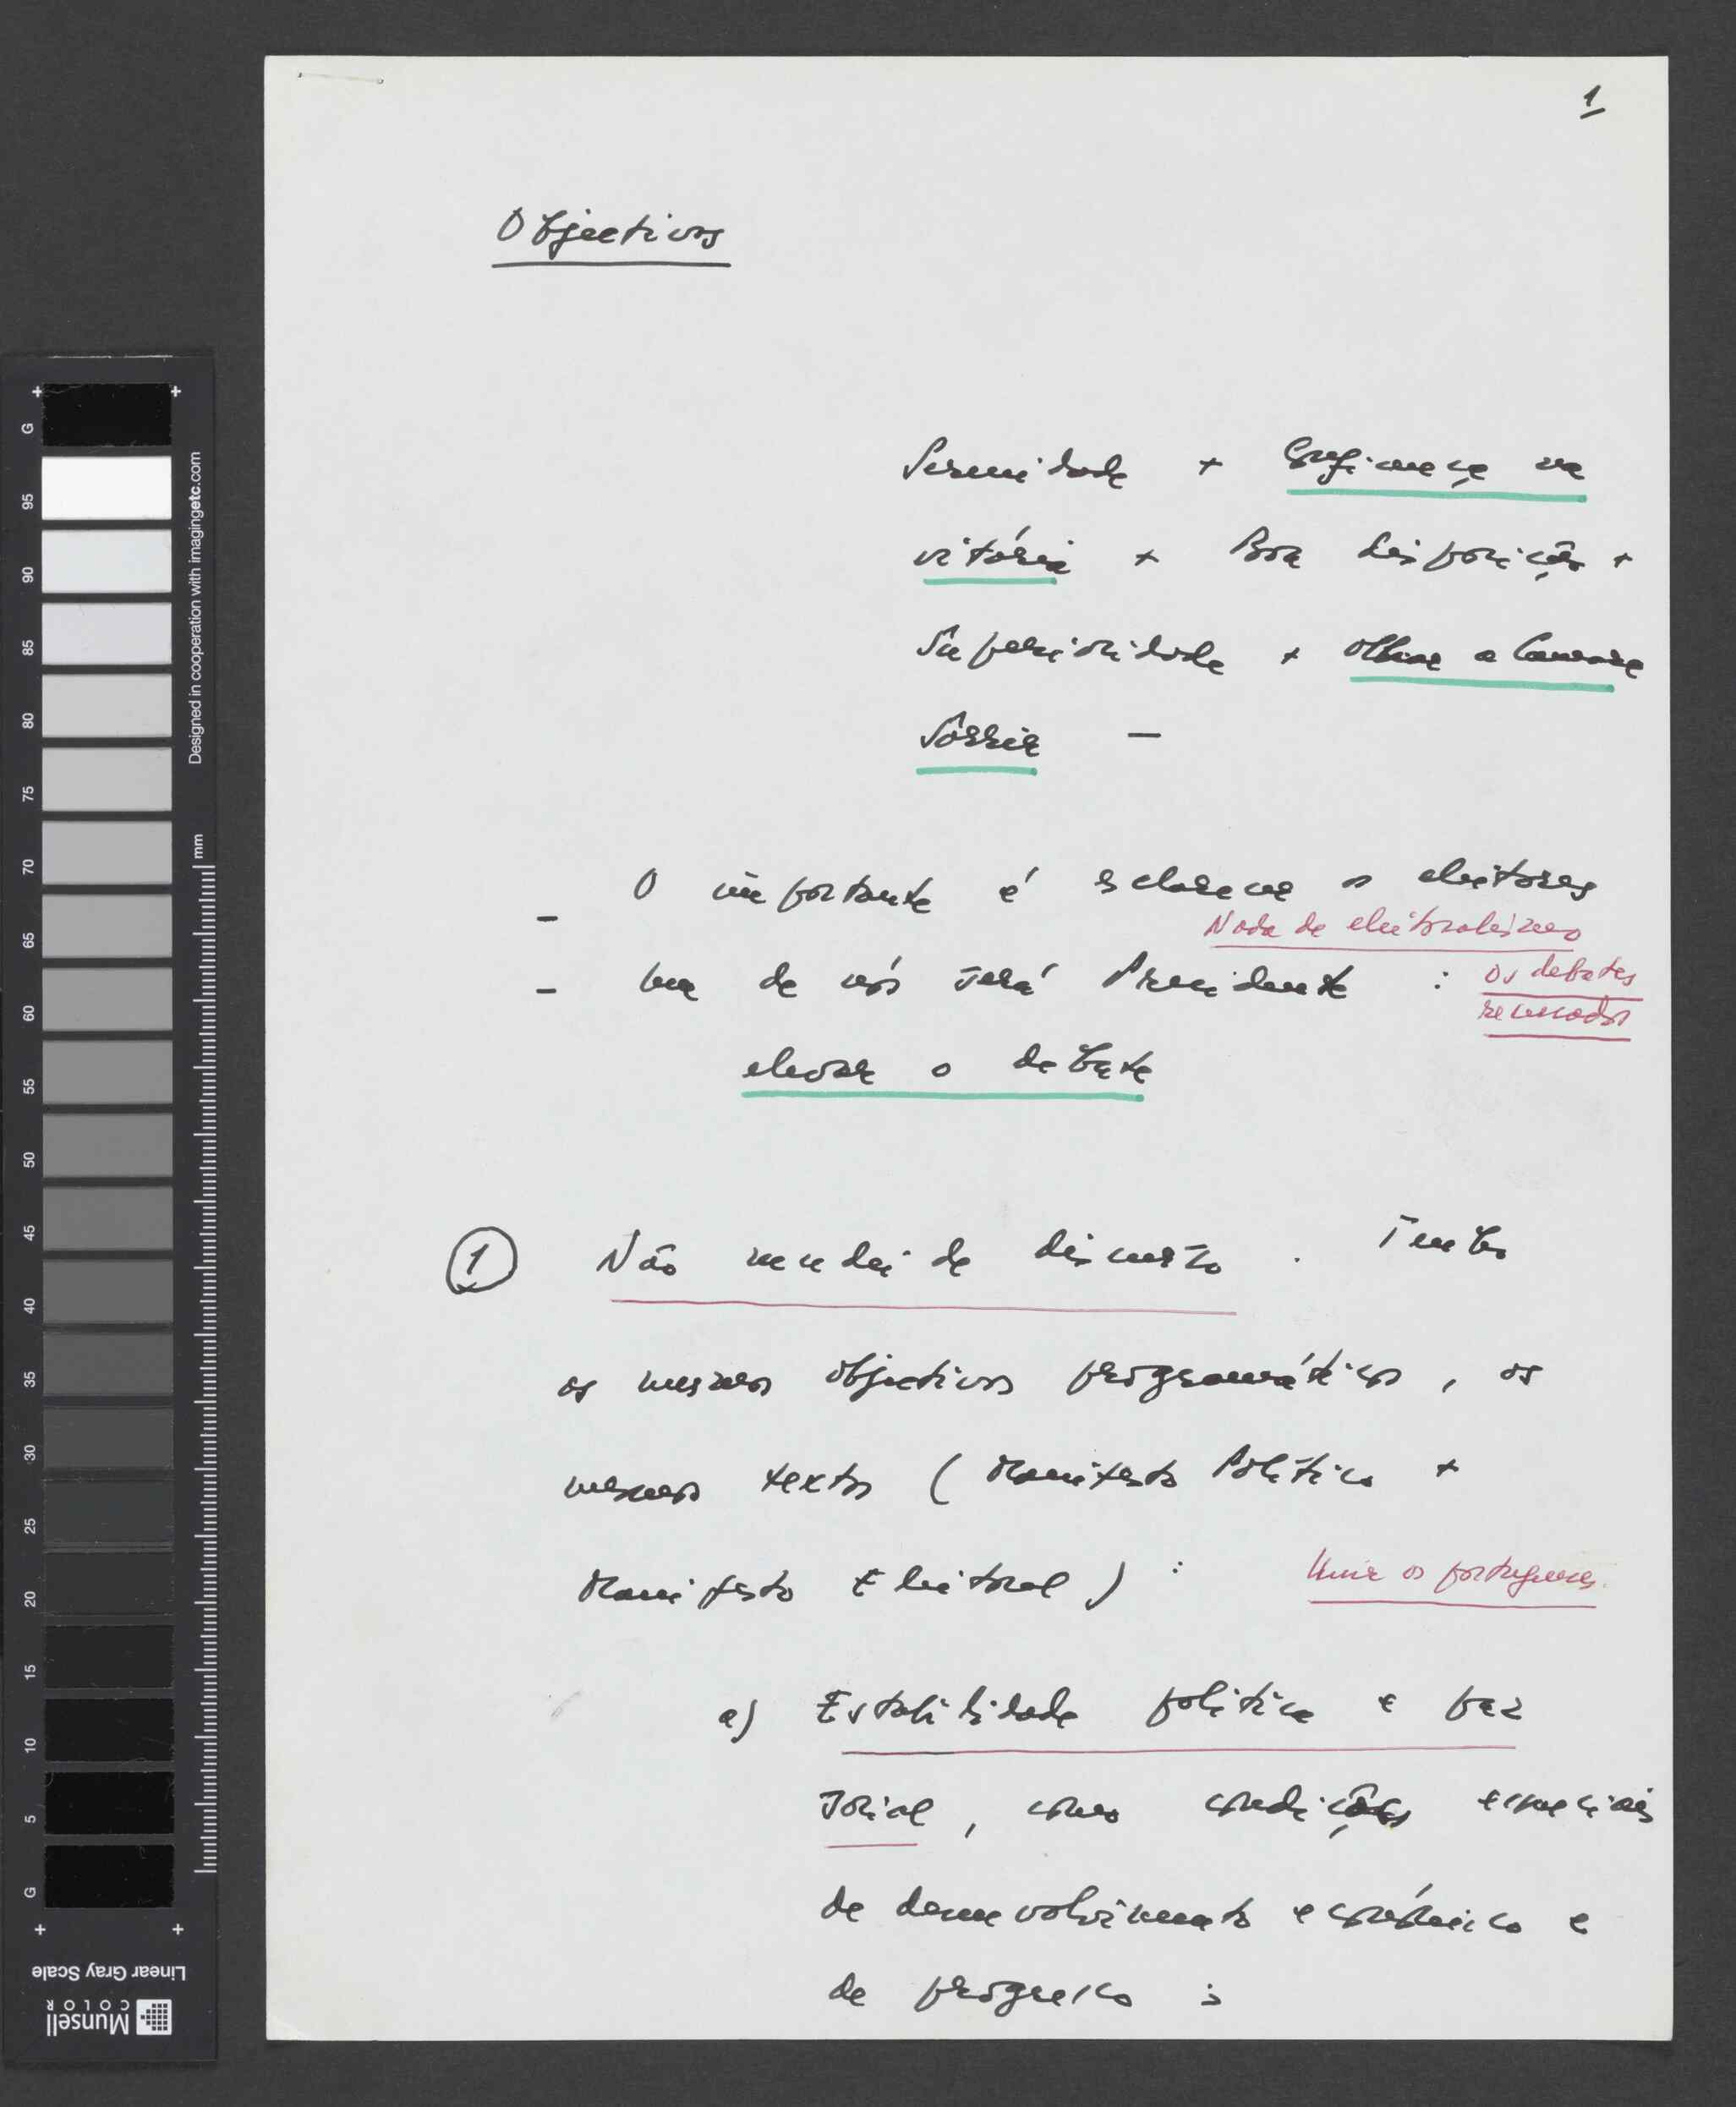 1
Objectivos
Serenidade + Confiança na
vitória + Boa disposição +
Superioridade + olhar a Camara
Sorrir —
- O importante é esclarecer os eleitores
Nada de eleitoralismo
- um de nós será Presidente : os debates
recusados
elevar o debate
1 Não mudei de discurso . Tenho
os mesmos objectivos programáticos , os
mesmos textos ( Manifesto Político +
Manifesto Eleitoral ) : Unir os portugueses
a) Estabilidade politica e paz
social , como condições essenciais
de desenvolvimento económico e
de progresso ;
G
95
90
85
80
75
70
65
60
55
50
45
40
35
30
25
20
15
10
5
G
Designed in cooperation with imagingetc.com
mm
Linear Gray Scale
Munsell
COLOR